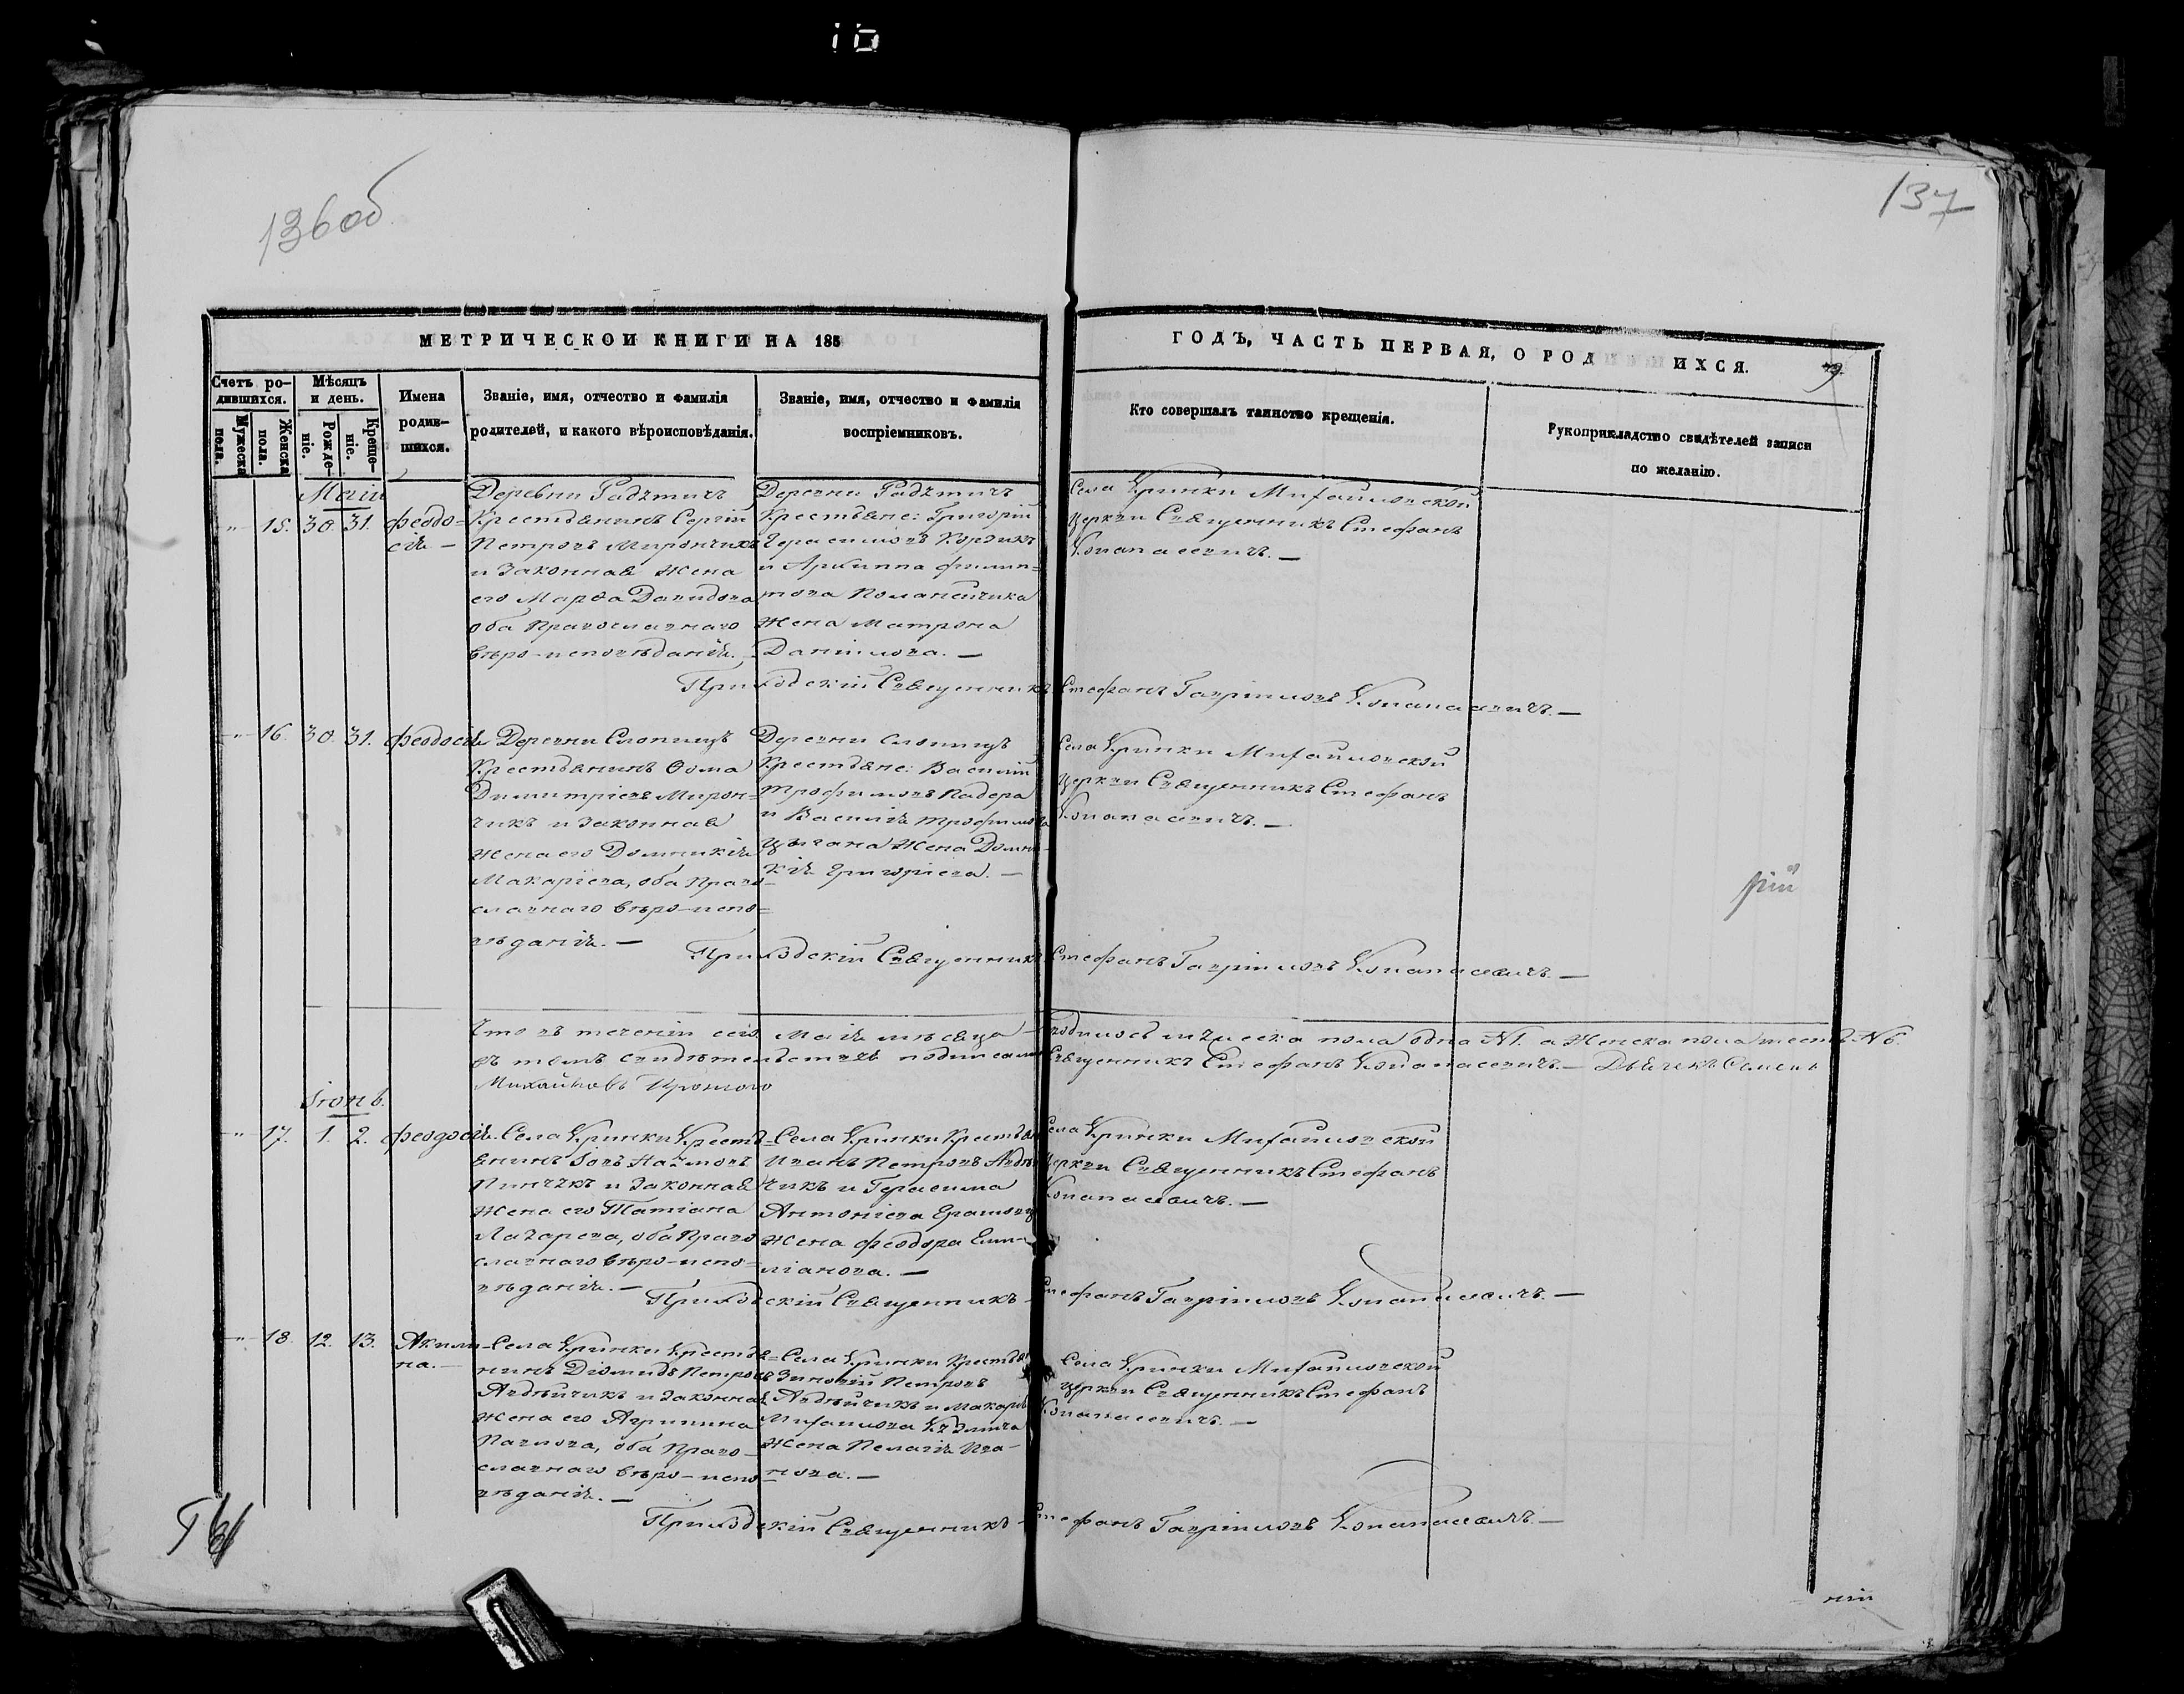 136об
137
МЕТРИЧЕСКОЙ КНИГИ НА 185
ГОДЪ, ЧАСТЬ ПЕРВАЯ, О РОДИВШИХСЯ.
9.
Счетъ ро-
дившихся.
Мужеска
пола.
Женска
пола.
Мѣсяцъ
и день.
Рожде-
ніе.
Креще-
ніе.
Имена
родив-
шихся.
Званіе, имя, отчество и фамилія
родителей, и какого вѣроисповѣданія.
Званіе, имя, отчество и фамилія
воспріемниковъ.
Кто совершалъ таинство крещенія.
Рукоприкладство свидѣтелей записи
по желанію.
Маія
„ 15. 30. 31. Феодо=
сія —
Деревни
Крестьянинъ Сергій
Петровъ Мирончикъ
и законная жена
его Марѳа Давидова
оба православнаго
вѣро-исповѣданія.
Деревни
Крестьяне: Григорій
Герасимовъ
и Архиппа Филип=
пова
жена Матрона
Даніилова. —
Села Кринки Михайловской
Церкви Священникъ Стефанъ
Конапасевичъ. —
Приходскій Священникъ Стефанъ Гавріиловъ Конапасевичъ. —
„ 16. 30. 31. Феодосія
Деревни Слопищъ
Крестьянинъ Ѳома
Димитріевъ Мирон=
чикъ и законная
жена его Домникія
Макаріева, оба право-
славнаго вѣро-испо=
вѣданія. —
Деревни Слопищъ
Крестьяне: Василій
Трофимовъ Падера
и Василія Трофимова
Цыгана жена Домни-
кія Григоріева. —
Села Кринки Михайловской
Церкви Священникъ Стефанъ
Конапасевичъ. —
рій
Приходскій Священникъ Стефанъ Гавріиловъ Конапасевичъ. —
Что въ теченіи сего Маія мѣсяца родилось мужеска пола одна №1. а женска пола шесть №6.
въ томъ свидѣтельствуя подписался Священникъ Стефанъ Конапасевичъ. — Дьячекъ Семенъ
Михайловъ
Іюнь.
„ 17. 1. 2. Феодосія.
Села Кринки Кресть=
янинъ Іовъ Наумовъ
Пинчукъ и законная
жена его Татіана
Лазарева, оба право
славнаго вѣро-испо=
вѣданія. —
Села Кринки Крестьяне
Иванъ Петровъ Авдѣй
чикъ и Герасима
Антоніева
жена Феодора Еми-
ліанова. —
Села Кринки Михайловской
Церкви Священникъ Стефанъ
Конапасевичъ. —
Приходскій Священникъ Стефанъ Гавріиловъ Конапасевичъ. —
„ 18. 12. 13. Акили-
на. —
Села Кринки Крестья=
нинъ Діомидъ Петровъ
Авдѣйчикъ и законная
жена его Агрипина
Павлова, оба право-
славнаго вѣро-испо
вѣданія. —
Села Кринки Крестьяне
Зиновій Петровъ
Авдѣйчикъ и Макарія
Михайлова Кузмича
жена Пелагія Ива-
нова. —
Села Кринки Михайловской
Церкви Священникъ Стефанъ
Конапасевичъ. —
Приходскій Священникъ Стефанъ Гавріиловъ Конапасевичъ. —
ній